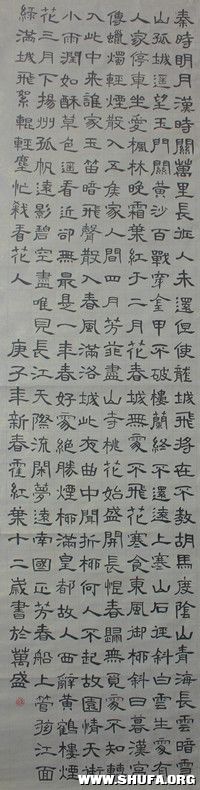 秦時明月漢時關萬里長征人未還但使龍城飛將在不教胡馬度陰山青海長雲暗雪
山孤城遙望玉門關黃沙百戰穿金甲不破樓蘭終不還遠上寒山石徑斜白雲生處有
人家停車坐愛楓林晚霜葉紅于二月花春城無處不飛花寒食東風御柳斜日暮漢宮
傳蠟燭輕煙散入五侯家人間四月芳菲盡山寺桃花始盛開長恨春歸無覓處不知轉
入此中來誰家玉笛暗飛聲散入春風滿洛城此夜曲中聞折柳何人不起故園情天街
小雨潤如酥草色遙看近卻無最是一年春好處絕勝煙柳滿皇都故人西辭黃鶴樓煙
花三月下揚州孤帆遠影碧空盡唯見長江天際流閑夢遠南國正芳春船上管弦江面
綠滿城飛絮輥輕塵忙殺看花人 庚子年新春霍紅葉十二歲書於萬盛
WWW.SHUFA.ORG